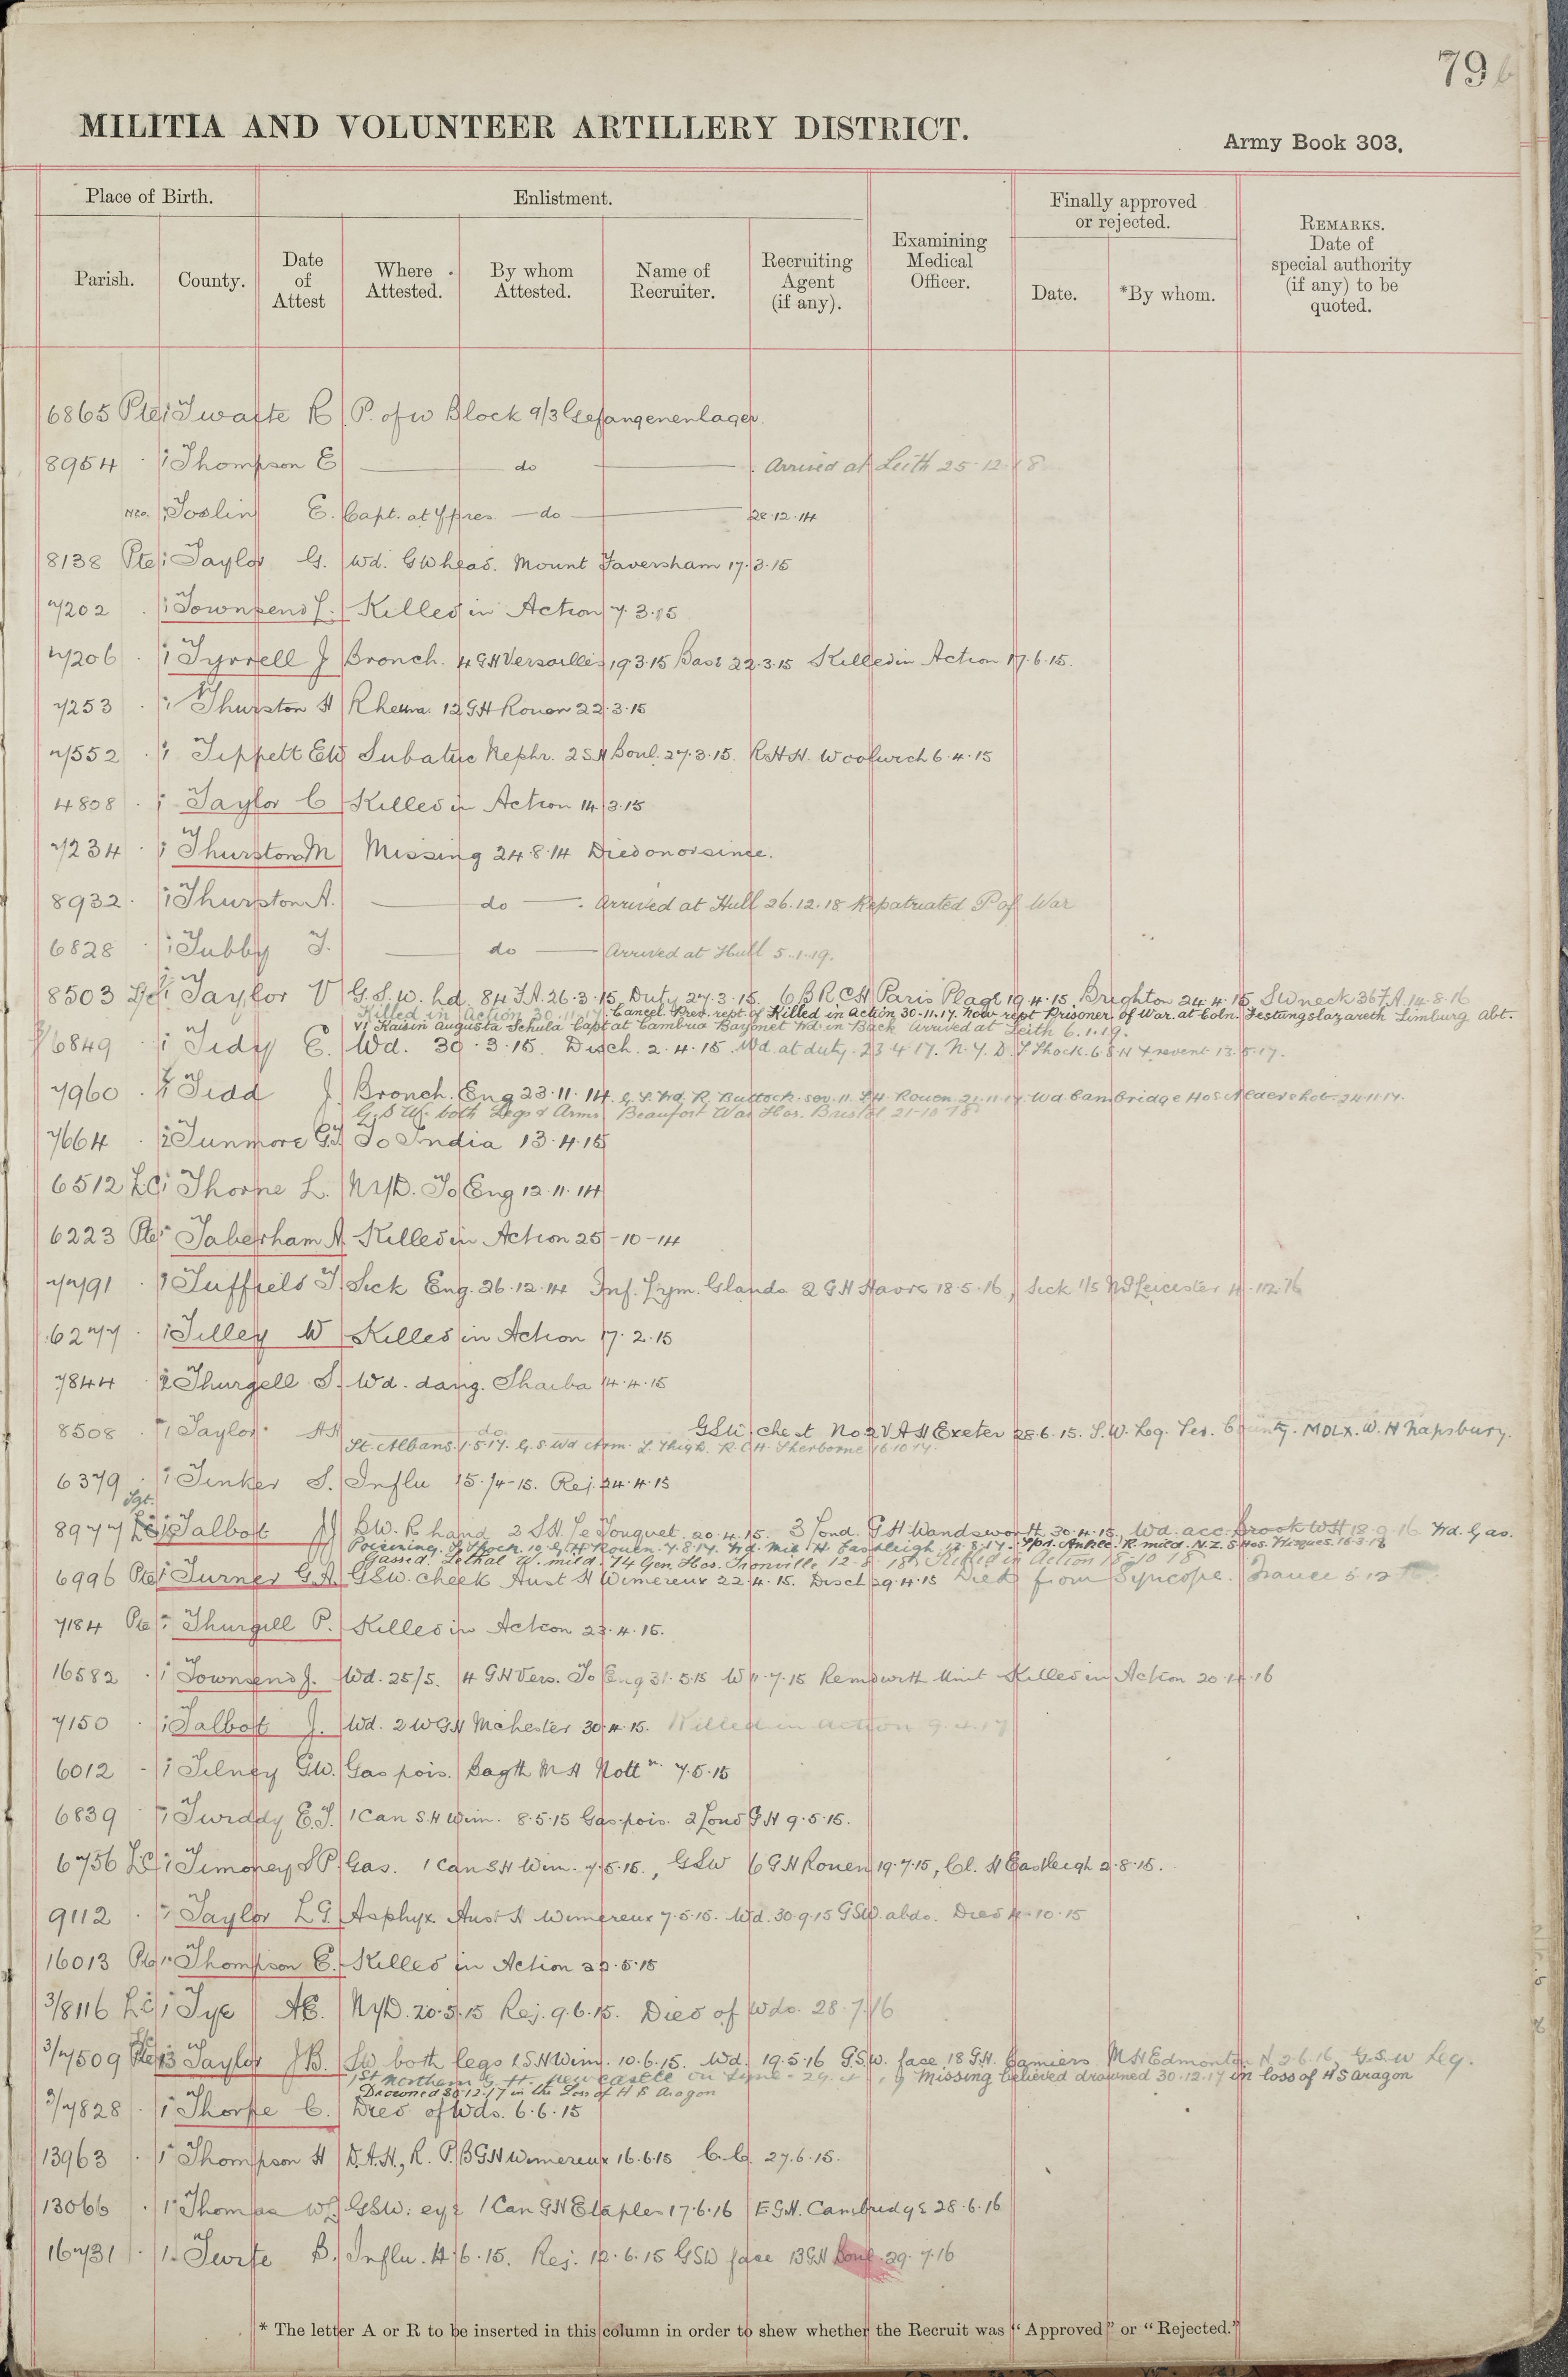 79
MILITIA AND VOLUNTEER ARTILLERY DISTRICT.
Army Book 303.
Place of Birth. Enlistment. Examining Medical Officer. Finally approved or rejected. REMARKS. Date of special authority (if any) to be quoted.
Parish. County. Date of Attest Where Attested. By whom Attested. Name of Recruiter. Recruiting Agent (if any). Date. *By whom.
6865 Pte Twaite R P. of W Block 9/3 Gefangenenlager.
8954 Thompson E do Arrived at Leith 25-12-18
Toslin E. Capt. at Ypres. do 28.12.14
8138 Pte Taylor G. Wd. GW head. Mount Faversham 17.3.15
7202 Townsend Killed in Action 7.3.15
7206 Tyrrell J Bronch. 4 GH Versailles 19.3.15 Base 22.3.15 Killed in Action 17.6.15.
7253 Thurston H Rheuma. 12 GH Rouen 22.3.15
7552 Tippett EW Subatue Nephr. 2 SH Boul. 27.3.15. R.H.H. Woolwich 6.4.15
4808 Taylor C Killed in Action 14.3.15
7234 Thurston M Missing 24.8.14 Died on or since.
8932 Thurston A. do Arrived at Hull 26.12.18 Repatriated P of War
6828 Tubby T. do Arrived at Hull 5.1.19.
8503 Taylor V G.S.W. hd. 84 F.A. 26.3.15, Duty 27.3.15. 6 B R C H Paris Plage 19.4.15, Brighton 24.4.15, SW neck 36 F.A. 14.8.16
Killed in Action 30.11.17. Cancel. Prev. rept. of Killed in Action 30.11.17. now rept Prisoner of War. at Coln. Festungslazareth Limburg abt.
VI Kaisin Augusta Schula Capt at Cambria Bayonet Wd in Back Arrived at Leith 6.1.19.
3/6849 Tidy E. Wd. 30.3.15. Disch. 2.4.15. Wd. at duty. 23.4.17. N.Y.D. Shock. 6 S H 13.5.17.
7960 Tidd J Bronch. Eng 23.11.14. G.S. Wd. R. Buttock. sev. 11. S H Rouen. 21.11.17. Wd Cambridge Hos. Aldershot. 24.11.17.
G.S.W. both Legs & Arms Beaufort War Hos. Bristol 21-10-18
7664 Tunmore G.J To India 13.4.15
6512 LC Thorne L. NYD. To Eng 12.11.14
6223 Pte Taberham A. Killed in Action 25-10-14
7791 Tuffield T. Sick Eng. 26.12.14 Inf. Lym. Glands 2 GH Havre 18.5.16, Sick 1/5 Nd Leicester 4.12.16
6277 Tilley W Killed in Action 17.2.15
7844 Thurgell S. Wd. dang. Shaiba 14.4.15
8508 Taylor AH do GSW chest No 2 V A H Exeter 28.6.15. S.W. Leg. County. MDLX. W. H Napsbury.
St. Albans. 1.5.17. G.S Wd Arm. L. Thigh. R.C.H. Sherborne 16.10.17.
6379 Tinker S. Influ 15.4-15. Rej. 24.4.15
Sgt.
8977 Talbot BW. R hand 2 SH. Le Touquet. 20.4.15. 3 Lond. G H Wandsworth 30.4.15. Wd. acc. Brook WH 18.9.16 Wd. Gas.
Poisining. S. Shock. 10. G.H Rouen. 7.8.17. Wd. Mil H. Eastleigh 17.8.17. Spr. Ankle. R mild. N.Z.S Hos. Wisques. 16.3.18
Gassed. Lethal W. mild. 74 Gen. Hos. Tronville 12.8.18. Killed in Action 18-10-18
6996 Pte Turner G.A. GSW. cheek Aust H Wimereux 22.4.15. Disch 29.4.15 Died from Syncope. France 5.12
7184 Pte Thurgill P. Killed in Action 23.4.15.
16582 Townsend J. Wd. 25/5. 4 GH Vers. To Eng 31.5.15 W 11.7.15 Remd with Unit Killed in Action 20.11.16
7150 Talbot J. Wd. 2 WGH Mchester 30.4.15. Killed in action 9.4.17
6012 Tilney GW. Gas pois. Bagth M H Nottm. 7.5.15
6839 Twiddy E.J. 1 Can S.H Wim. 8.5.15 Gas pois. 2 Lond G H 9.5.15.
6756 LC Timoney SP. Gas. 1 Can SH Wim. 7.5.15., GSW 6 GH Rouen 19.7.15, Cl. H Eastleigh 2.8.15.
9112 Taylor LG. Asphyx. Aust H Wimereux 7.5.15. Wd. 30.9.15 GSW. abdo. Died 4.10.15
16013 Pte Thompson E. Killed in Action 22.5.15
3/8116 LC Tye AE. NYD. 20.5.15 Rej. 9.6.15. Died of Wds. 28.7.16
3/7509 Taylor JB. SW both legs 1 S.H Wim. 10.6.15. Wd. 19.5.16 G.S.W. face 18 GH. Camiers M H Edmonton N 2.6.16, G.S.W Leg.
1st Northern G. H. Newcastle on Tyne Missing believed drowned 30.12.17 in loss of HS Aragon
Drowned 30.12.17 in the Loss of H S Aragon
3/7828 Thorpe C. Died of Wds. 6.6.15
13963 Thompson H D.A.H., R. P.B GH Wimereux 16.6.15 C.C. 27.6.15.
13066 Thomas WJ GSW. eye 1 Can GH Etaples 17.6.16 E.G.H. Cambridge 28.6.16
16731 Twite B. Influ. 4.6.15. Rej. 12.6.15 GSW face 13 GH Boul. 29.7.16
* The letter A or R to be inserted in this column in order to shew whether the Recruit was "Approved" or "Rejected."